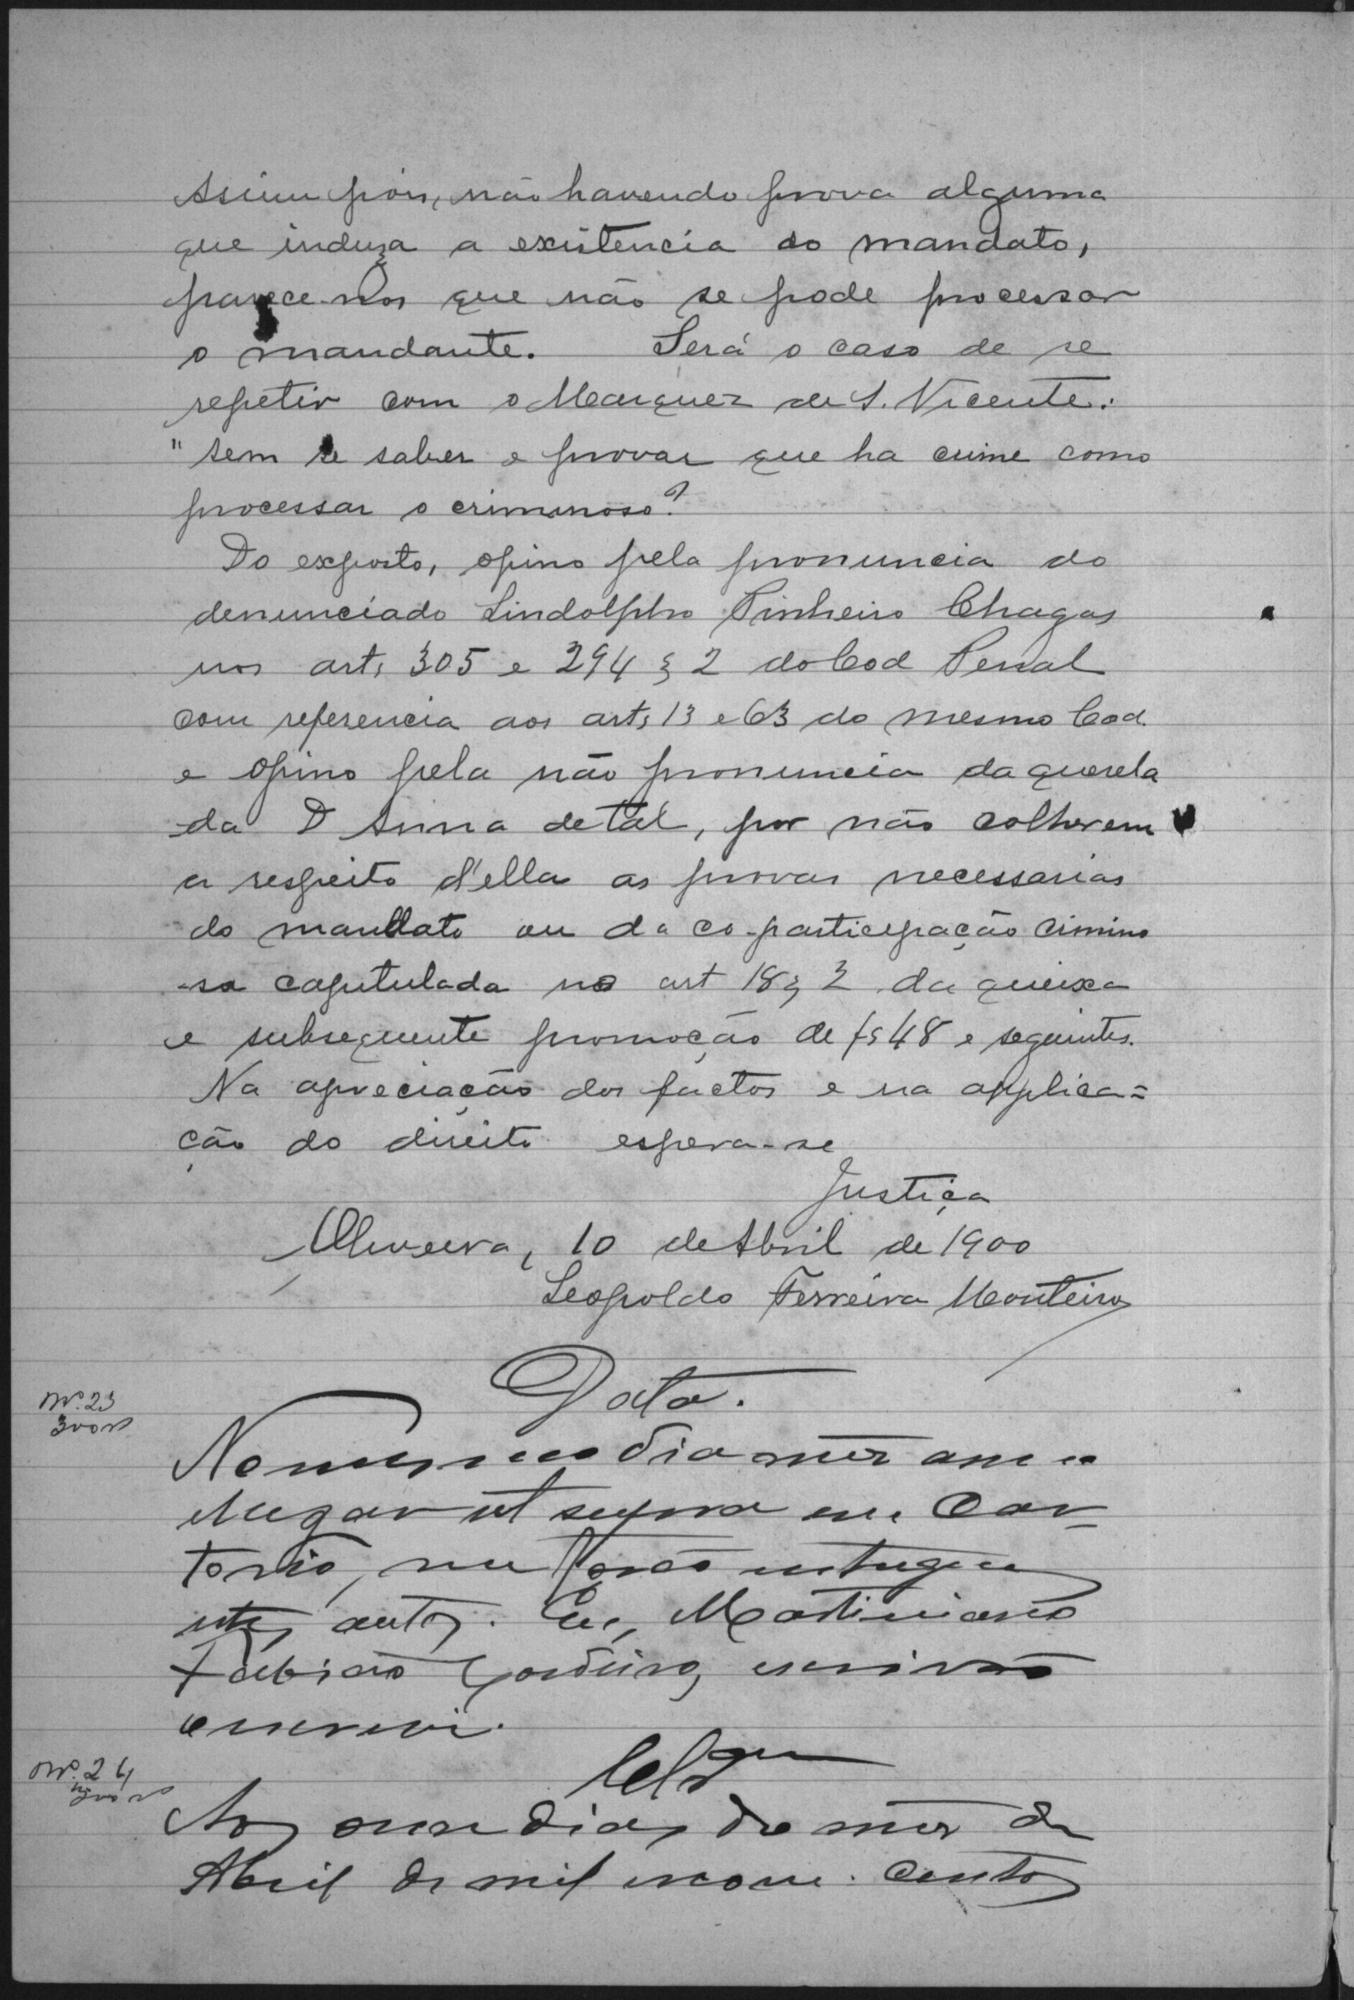 Assim pois, não havendo prova alguma
que induza a existencia do mandato,
parece-nos que não se pode processar
o mandante. Será o caso de se
repetir com o Marquez de S. Vicente:
"sem se saber e provar que ha crime como
processar o criminoso?
Do exposto, opino pela pronuncia do
denunciado Lindolpho Pinheiro Chagas
nos arts 305 e 294 § 2 do Cod Penal
com referencia aos arts 13 e 63 do mesmo Cod.
e opino pela não pronuncia da querela
da D Anna de Tal, por não colherem
a respeito d'ella as provas necessarias
do mandato ou da co-participação crimino
-sa capitulada no art 18 § 2 da queixa
e subsequente promoção de fs 48 e seguintes.
Na apreciação dos factos e na applica=
ção do direito espera-se
Justiça
Oliveira, 10 de Abril de 1900
Leopoldo Ferreira Monteiro
Data.
Nº 23
No mesmo dia mez anno e
lugar ut supra em Car-
torio, me forão entregues
estes autos. Eu, Martiniano
Fabião Cordeiro, escrivão
escrevi.
Nº 24
Clsam
Aos onze dias do mez de
Abril de mil e nove centos